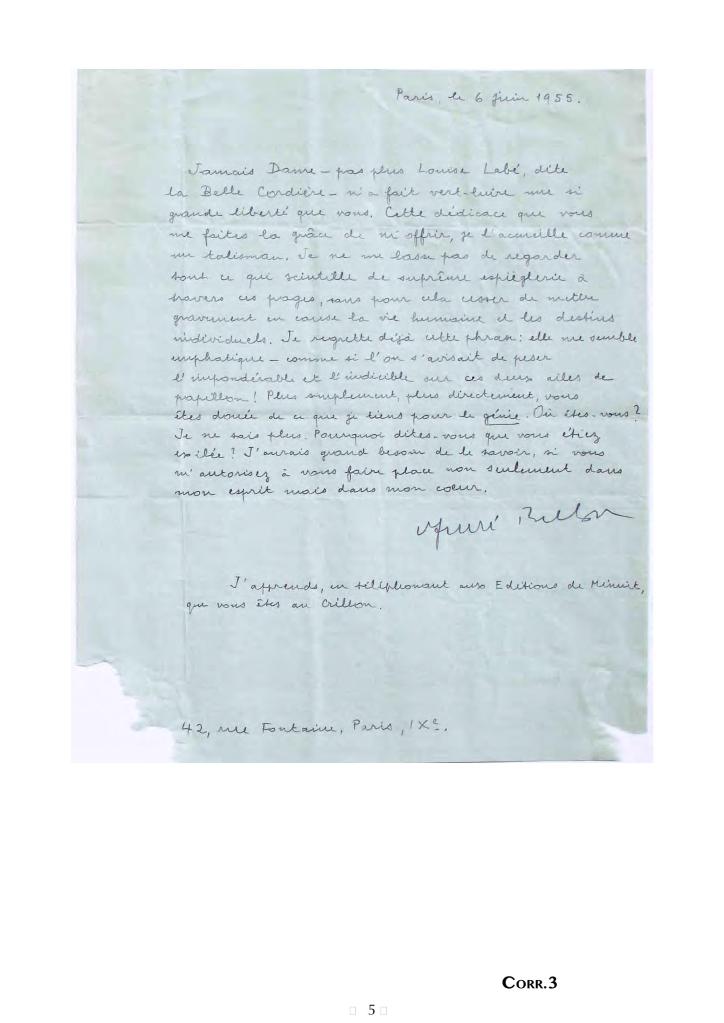 Paris, le 6 juin 1955.
Jamais Dame – pas plus Louise Labé, dite
la Belle Cordière – n'a fait vert-luire une si
grande liberté que vous. Cette dédicace que vous
me faites la grâce de m'offrir, je l'accueille comme
un talisman. Je ne me lasse pas de regarder
tout ce qui scintille de suprême espièglerie à
travers ces pages, sans pour cela cesser de mettre
gravement en cause la vie humaine et les destins
individuels. Je regrette déjà cette phrase : elle me semble
emphatique – comme si l'on s'avisait de peser
l'impondérable et l'indicible sur ces deux ailes de
papillon ! Plus simplement, plus directement, vous
êtes douée de ce que je tiens pour le génie. Où êtes-vous ?
Je ne sais plus. Pourquoi dites-vous que vous étiez
exilée ? J'aurais grand besoin de le savoir, si vous
m'autorisez à vous faire place non seulement dans
mon esprit mais dans mon cœur.
André Breton
J'apprends, en téléphonant aux Editions de Minuit,
que vous êtes au Crillon.
42, rue Fontaine, Paris, IXe.
CORR.3
5